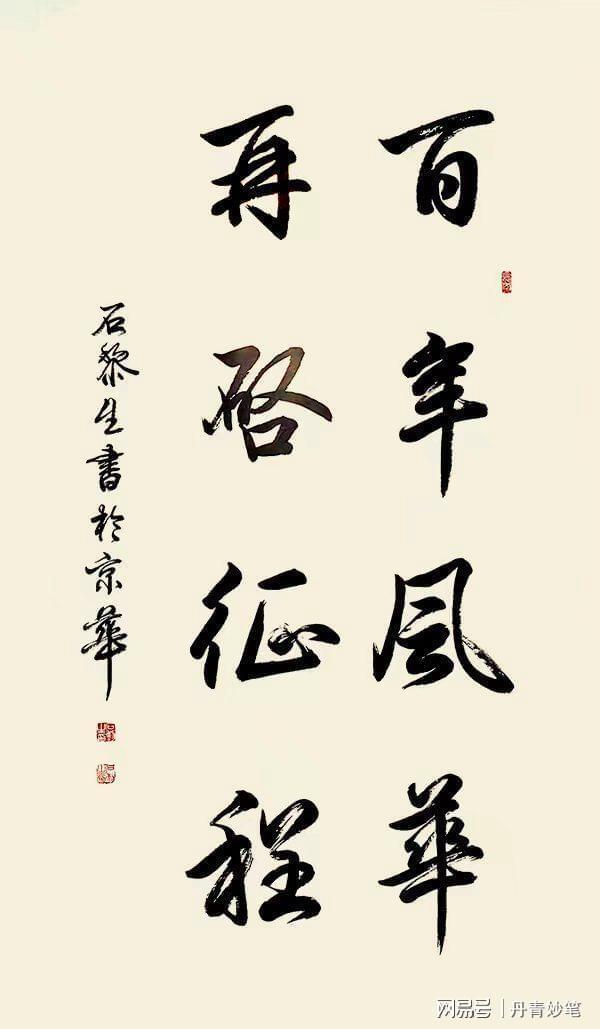 百年風華
再啓征程
石黎生書於京華
网易号 | 丹青妙笔